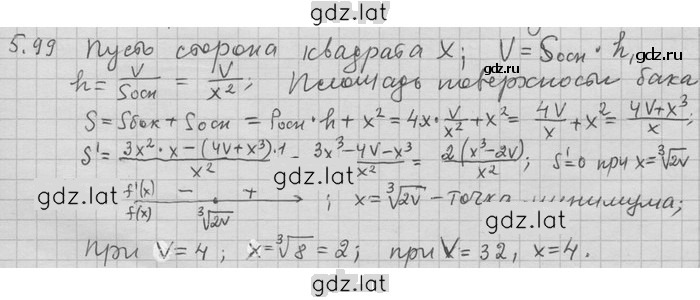 gdz.lat
5.99 Пусть сторона квадрата x; V = Sосн · h,
gdz.lat
h = V/Sосн = V/x²; Площадь поверхности бака
gdz.lat
S = Sбок + Sосн = Pосн · h + x² = 4x · V/x² + x² = 4V/x + x² = (4V+x³)/x;
gdz.lat
S' = (3x²·x − (4V+x³)·1)/x² = (3x³−4V−x³)/x² = 2(x³−2V)/x²; S'=0 при x=∛2V
gdz.lat
f'(x) − + ; x = ∛2V − точка минимума;
f(x) ∛2V
gdz.lat
gdz.lat
при V=4; x=∛8=2; при V=32, x=4.
gdz.lat